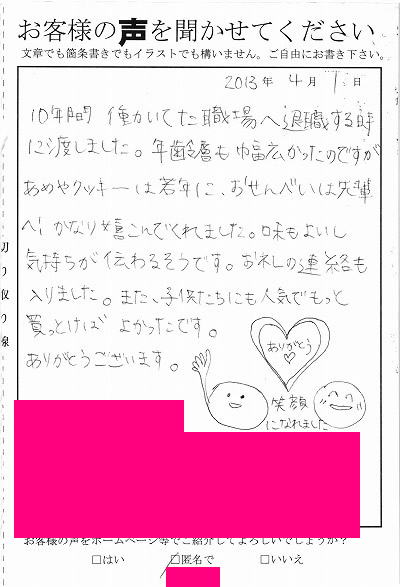 お客様の声を聞かせてください
文章でも箇条書きでもイラストでも構いません。ご自由にお書き下さい。
2013年 4月 1日
10年間 働いてた職場へ退職する時
に渡しました。年齢層も幅広かったのですが
あめやクッキーは若年に、おせんべいは先輩
へ! かなり嬉こんでくれました。味もよいし
気持ちが伝わるそうです。お礼の連絡も
入りました。また、子供たちにも人気でもっと
買っとけば よかったです。
ありがとうございます。
ありがとう
笑顔
になれました
切り取り線
お客様の声をホームページ等でご紹介してよろしいでしょうか?
□はい □匿名で □いいえ